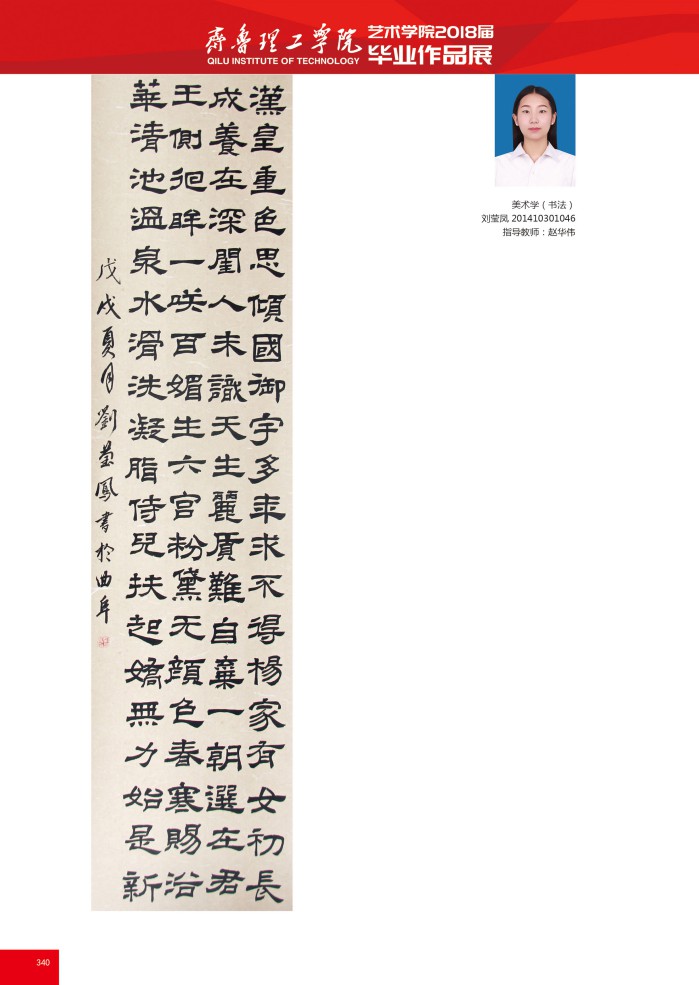 齊魯理工學院
QILU INSTITUTE OF TECHNOLOGY
艺术学院2018届
毕业作品展
漢皇重色思傾國御宇多年求不得楊家有女初長
成養在深閨人未識天生麗質難自棄一朝選在君
王側迴眸一咲百媚生六宮粉黛无顏色春寒賜浴
華清池溫泉水滑洗凝脂侍兒扶起嬌無力始是新
戊戌夏月劉瑩鳳書於曲阜
美术学（书法）
刘莹凤 201410301046
指导教师：赵华伟
340